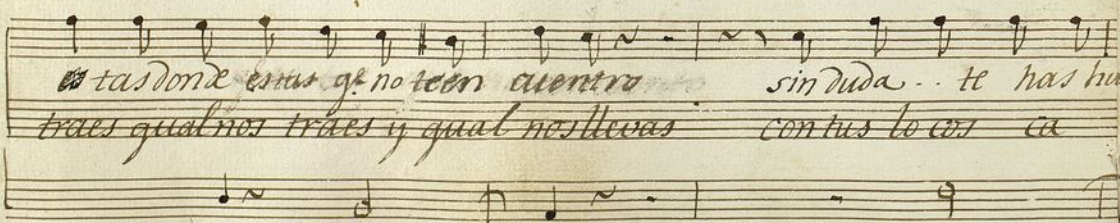 es tas donde estas qe no te en cuentro sin duda .. te has hu
traes qual nos traes y qual nos llevas con tus lo cos ca